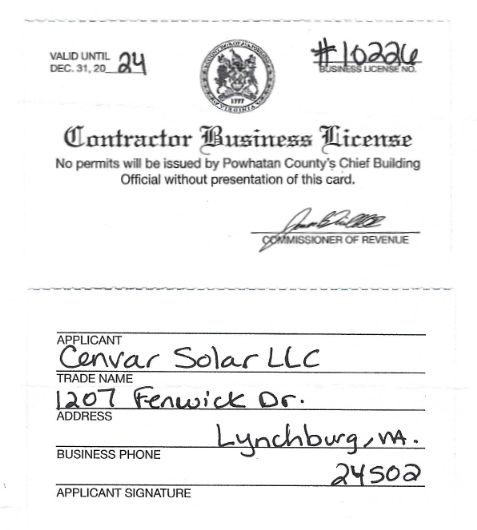 VALID UNTIL
DEC. 31, 20 24
#10226
BUSINESS LICENSE NO.
VIRGINIA
1777
Contractor Business License
No permits will be issued by Powhatan County's Chief Building
Official without presentation of this card.
COMMISSIONER OF REVENUE
APPLICANT
Cenvar Solar LLC
TRADE NAME
1207 Fenwick Dr.
ADDRESS
Lynchburg, VA.
BUSINESS PHONE
24502
APPLICANT SIGNATURE